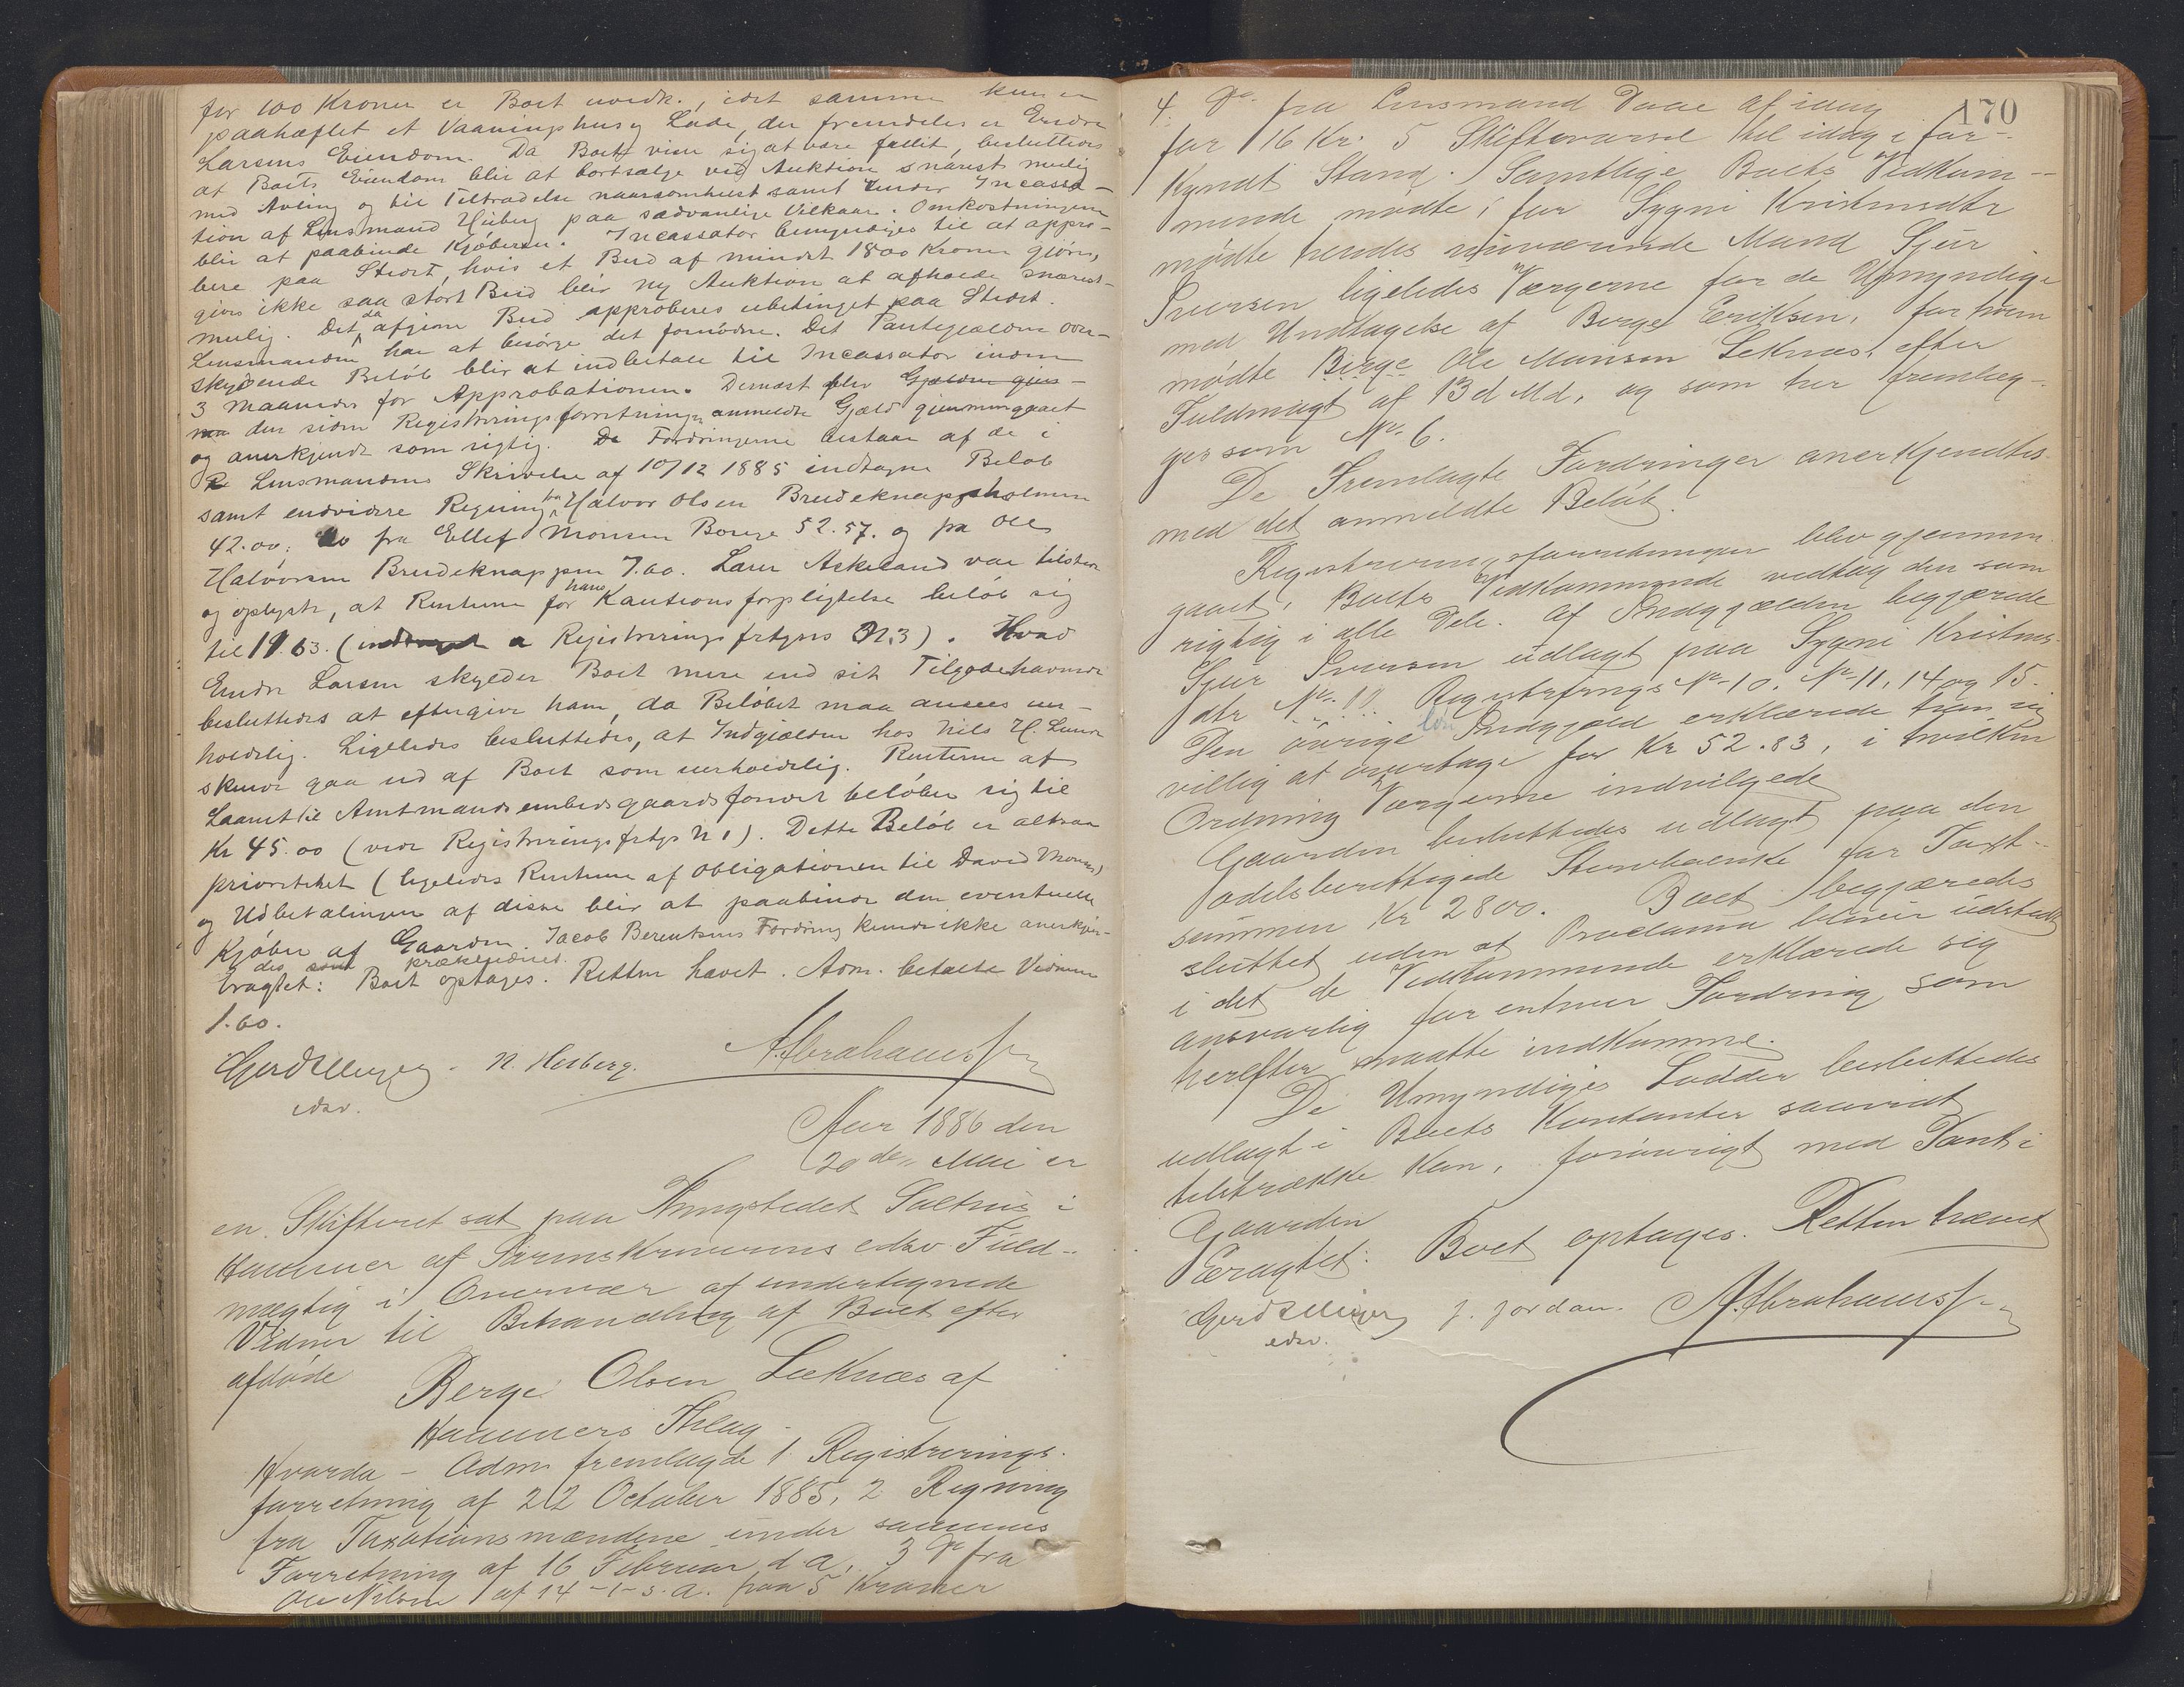 for 100 Kroner er Boet uvedk., idet samme kun er
paahæftet et Vaaningshus og Lade, der fremdeles er Endre
Larsens Eiendom. Da Boet viser sig at være fallit, besluttedes
at Boets Eiendom blir at bortsælge ved Auktion snarest mulig
med Avling og til Tiltrædelse naarsomhelst samt under Incassa-
tion af Lensmand Husberg paa sædvanlige Vilkaar. Omkostningerne
blir at paabinde Kjøberen. Incassator bemyndiges til at appro-
bere paa Stedet, hvis et Bud af mindst 1800 Kroner gjøres,
gives ikke saa stort Bud blir ny Auktion at afholde snarest-
mulig. Det da afgivne Bud approberes ubetinget paa Stedet.
Lensmanden har at besørge det fornødne. Det Pantegjælden over-
skydende Beløb blir at indbetale til Incassator inden
3 Maaneder for Approbationen. Dernæst blev Gjælden gjen-
den siden Registreringsforretningen anmeldte Gjæld gjennemgaaet
og anerkjendt som rigtig. De Fordringerne bestaar af de i
Lensmandens Skrivelse af 10/12 1885 indtagne Beløb
samt endvidere Regning fra Halvor Olsen Breideknappsholmen
42.00; do fra Ellef Monsen Borge 52.57. og fra Ole
Halvorsen Breideknappen 7.00. Lærer Askeland var tilstede
og oplyste, at Renterne for hans Kautionsforpligtelse beløb sig
til 19.63. ( Registreringsfrtgns N.3). Hvad
Endre Larsen skylder Boet mere end sit Tilgodehavende
besluttedes at eftergive ham, da Beløbet maa ansees uer-
holdelig. Ligeledes besluttedes, at Indgjælden hos Nils H. Lunde
skulde gaa ud af Boet som uerholdelig. Renterne af
Laanet til Amtmandsembedsgaardsfondet beløber sig til
Kr 45.00 (vide Registreringsfrtgs N 1). Dette Beløb er altsaa
prioritetet (ligeledes Renterne af Obligationen til David Monsen)
og Udbetalingen af disse blir at paabinde den eventuelle
Kjøber af Gaarden. Jacob Berentsens Fordring kunde ikke anerkjen-
des som prækluderet.
Eragtet: Boet optages. Retten hævet. Adm. betalte Vidnerne
1.60.
Gerd Ellingsen. N. Husberg. A. Abrahamsen
edsv.
Aar 1886 den
20de Mai er
en Skifteret sat paa Thingstedet Salhus i
Hammer af Sorenskriverens edsv Fuld-
mægtig i Overvær af undertegnede
Vidner til Behandling af Boet efter
afdøde
Berge Olsen Leknæs af
Hammers Thlag
Hvorda - Adm fremlagde 1 Registrerings-
forretning af 22 October 1885, 2 Regning
fra Taxationsmændene under sammes
Forretning af 16 Februar d.a., 3 Do fra
Ole Nilsen af 14-1-s.a. paa 5 Kroner
170
4. Do. fra Lensmand Daae af idag
for 16 Kr. 5 Skiftevarsel til idag i for-
kyndt Stand. Samtlige Boets Vedkom-
mende mødte, for Sygni Kristensdtr
mødte hendes nuværende Mand Sjur
Iversen ligeledes Værgerne for de Umyndige
med Undtagelse af Berge Eriksen, for hvem
mødte Berge Ole Monsen Leknæs, efter
Fuldmagt af 13 d Md, og som her fremlæg-
ges som No. 6.
De Fremlagte Fordringer anerkjendtes
med det anmeldte Beløb.
Registreringsforretningen blev gjennem-
gaaet, Boets Vedkommende vedtog den som
rigtig i alle Dele. Af Indgjælden begjærede
Sjur Iversen udlagt paa Sygni Kristens-
dtr No. 10. Registrfrngs No 10. No 11, 14 og 15.
Den øvrige Indgjæld erklærede han sig
villig at overtage for Kr 52.83, i hvilken
Ordning Værgerne indvilgede
Gaarden besluttedes udlagt paa den
odelsberettigede Stervboenke for Taxt-
summen Kr 2800. Boet begjæredes
sluttet uden at Proclama bliver udstedt
i det de Vedkommende erklærede sig
ansvarlig for enhver Fordring som
herefter maatte indkomme.
De Umyndiges Lodder besluttedes
udlagt i Boets Kontanter saavidt
tilstrække kan, forøvrigt med Pant i
Gaarden
Eragtet: Boet optages. Retten hævet
Gerd Ellingsen J. Jordan. A. Abrahamsen
edsv.